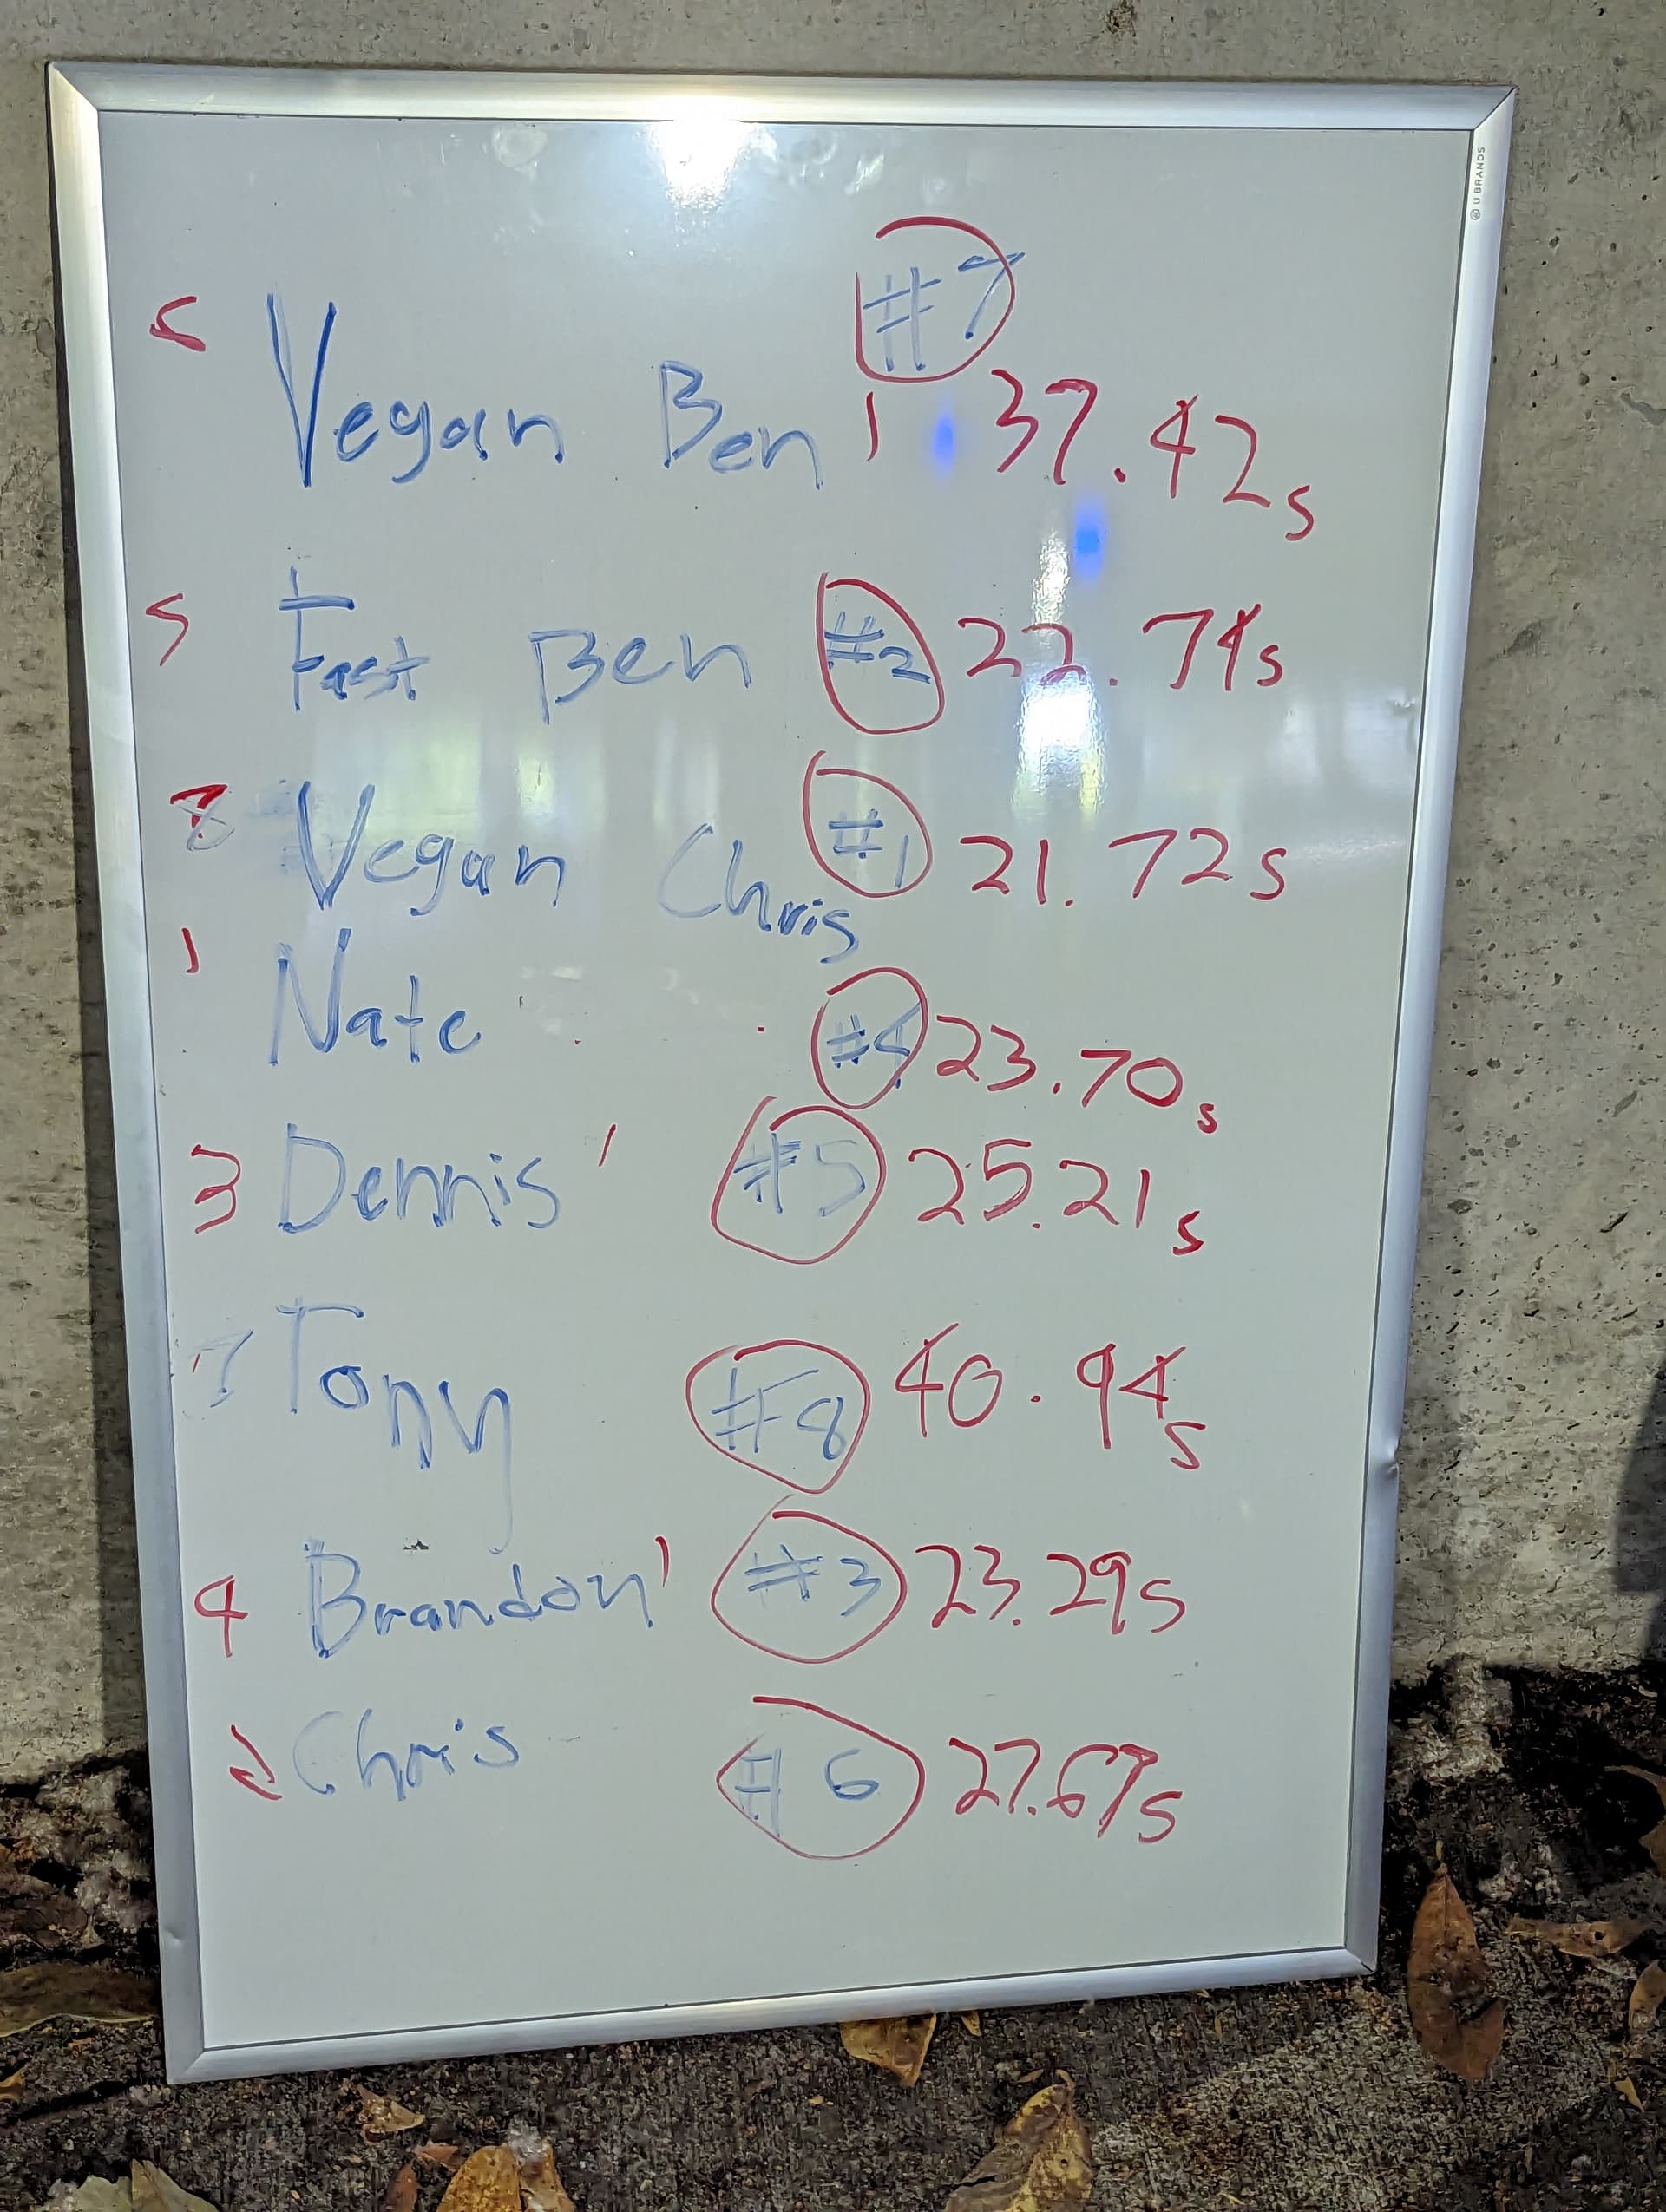 U BRANDS
#7
Vegan Ben 1 37.42s
5 Fast Ben #2 22.74s
Vegan Chris #1 21.72s
1 Nate #4 23.70s
3 Dennis ' #5 25.21s
7 Tony #8 40.94s
4 Brandon ' #3 23.29s
2 Chris #6 27.67s